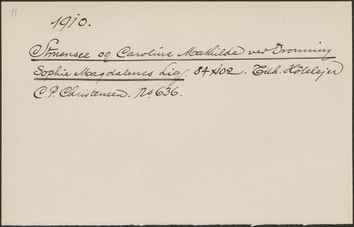 1910.
Struensee og Caroline Mathilde ved Dronning
Sophie Magdalenes Lig. 84x102. Tilh. Hotelejer
C. P. Christensen. No 636.